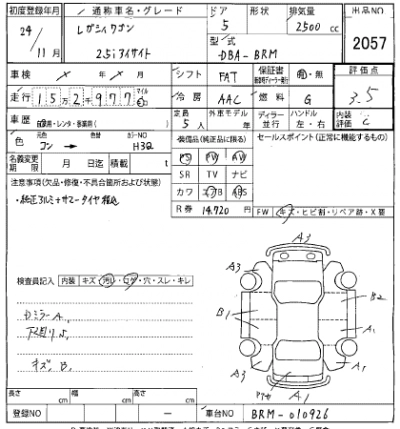 初度登録年月 通称車名・グレード ドア 形状 排気量 出品NO
24年 レガシィワゴン 5 2500cc 2057
11月 2.5iアイサイト 型式 DBA-BRM
車検 年 月 シフト FAT 保証書 有・無 評価点
走行 152977 冷房 AAC 燃料 G 3.5
車歴 自家用・レンタ・事業用( ) 定員 5人 外車モデル ディーラー 並行 ハンドル 左・右 内装評価 C
色 元色 コン → 色替 カラーNO H3Q 装備品(純正品に限る) セールスポイント(正常に機能するもの)
名義変更期限 月 日迄 積載 t PS PW AW
注意事項(欠品・修復・不具合箇所および状態) SR TV ナビ
カワ エアB ABS
R券 14.720円 FW キズ・ヒビ割・リペア跡・X要
A3
検査員記入 内装 キズ・汚れ・コゲ・穴・スレ・キレ
A3 A3
B1 B2
ドミラーA, A1
下廻りサ,
キズ, B, A3 A1
A1
長さ cm 幅 cm 高さ cm
登録NO 車台NO BRM-010926